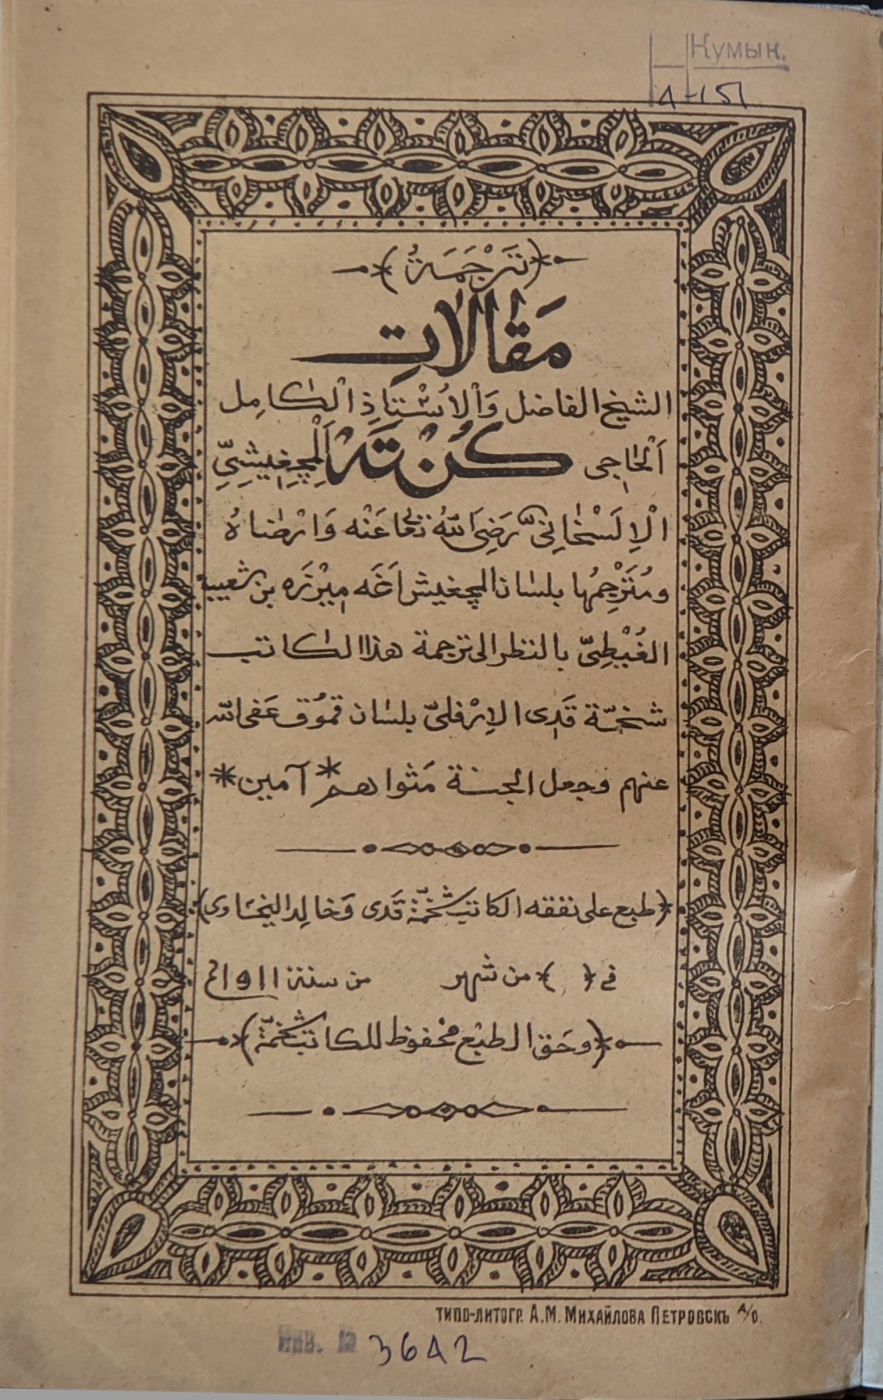 Кумык.
А-151
﴿تَرْجَمَةُ﴾
مَقَالَاتِ
الشيخ الفاضل وَالْاُسْتَاذِ الْكَامِل
اَلْحَاجِى كُنْتَه اَلْمِچِغِيشِىِّ
الْاِلَسْخَانِىّ رَضِىَ اللّٰهُ تعالى عَنْه وَاَرْضَاهُ
ومُتَرْجِمُها بلسان المچغيش اَغَه مِيرْزَه بن شعيب
الغُبْطِىّ بالنظر الى ترجمة هذا الكاتب
شخمّة قَدِى الاِرْفلىّ بلسان قموُق عَفى اللّه
عنهم وجعل الجنة مَثواهم * آمين *
﴿طبع على نفقه الكاتب شخمّة قَدى وَخالد اليخساوى﴾
فى ﴿ ﴾ من شهر من سنة ١٩١١م
﴿وحَق الطبع محفوظ للكاتب شخمّة﴾
ТИПО-ЛИТОГР. А.М. МИХАЙЛОВА ПЕТРОВСКЪ Д/О.
Инв. № 3642